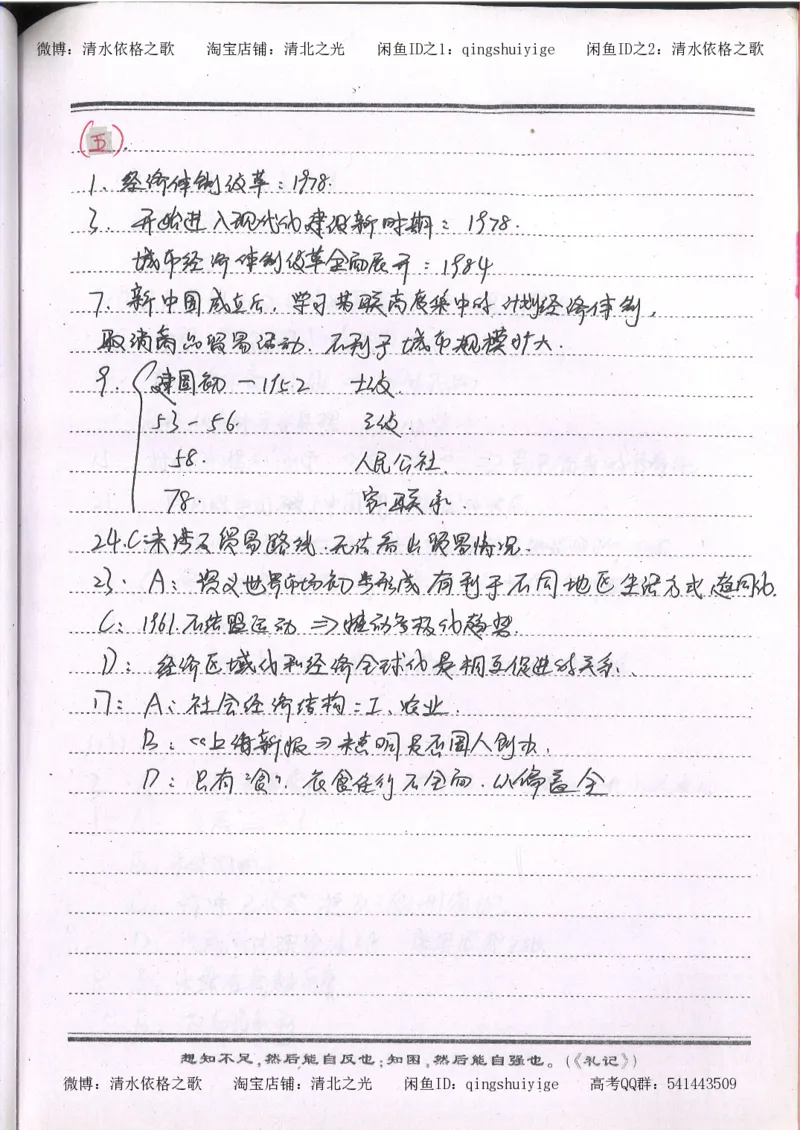 微博：清水依格之歌 淘宝店铺：清北之光 闲鱼ID之1：qingshuiyige 闲鱼ID之2：清水依格之歌
(五).
1、经济体制改革：1978.
3、开始进入现代化建设新时期：1978.
城市经济体制改革全面展开：1984
7、新中国成立后，学习苏联高度集中的计划经济体制，
取消商品贸易活动．不利于城市规模扩大．
9. 建国初－1952 土改．
53－56． 三改．
58． 人民公社．
78． 家联承．
24.C：未涉及贸易路线．无法看出贸易情况．
23． A：资义世界市场初步形成 有利于不同地区生活方式趋同化．
C：1961．不结盟运动 ⇒ 推动多极化趋势．
D：经济区域化和经济全球化是相互促进的关系．
17：A：社会经济结构：工、农业．
B：《上海新报》未表明是否国人创办．
D：只有“食”．衣食住行不全面．以偏盖全
想知不足,然后能自反也;知困,然后能自强也。(《礼记》)
微博：清水依格之歌 淘宝店铺：清北之光 闲鱼ID：qingshuiyige 高考QQ群：541443509